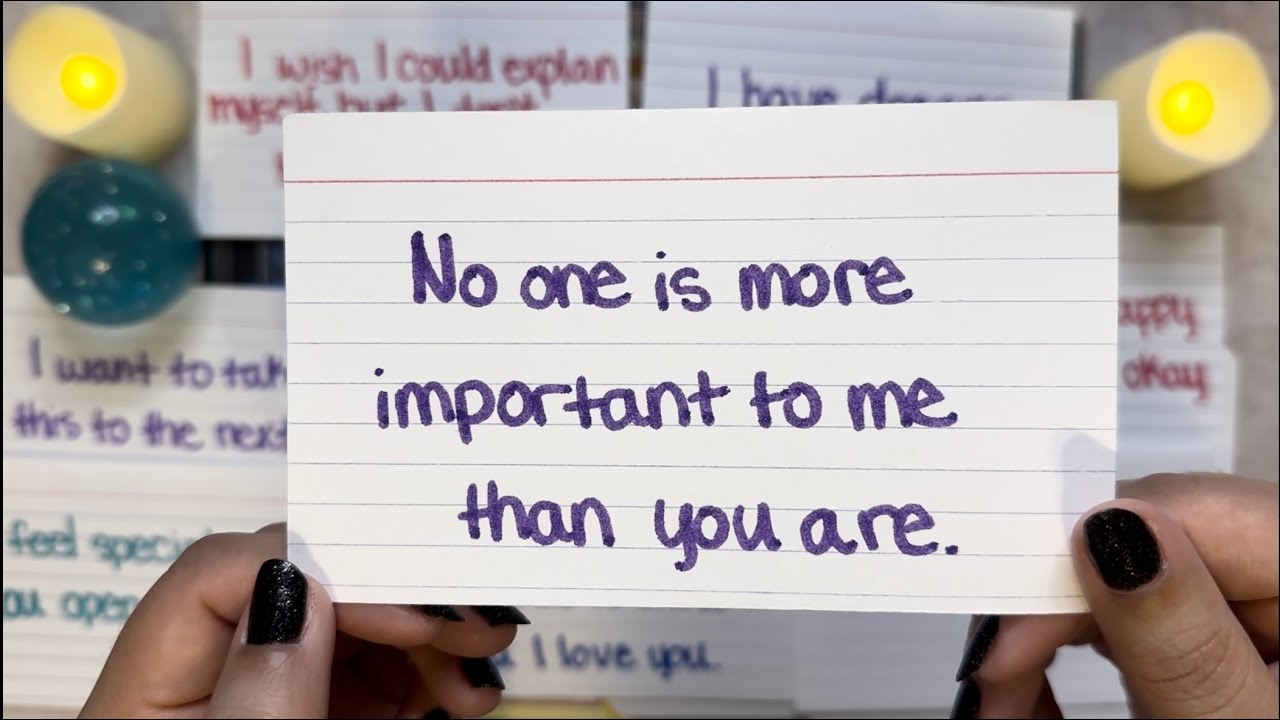 I wish I could explain
myself but I don't
I have
No one is more
important to me
than you are.
I want to
this to the next
happy
okay
feel special
you open
I love you.